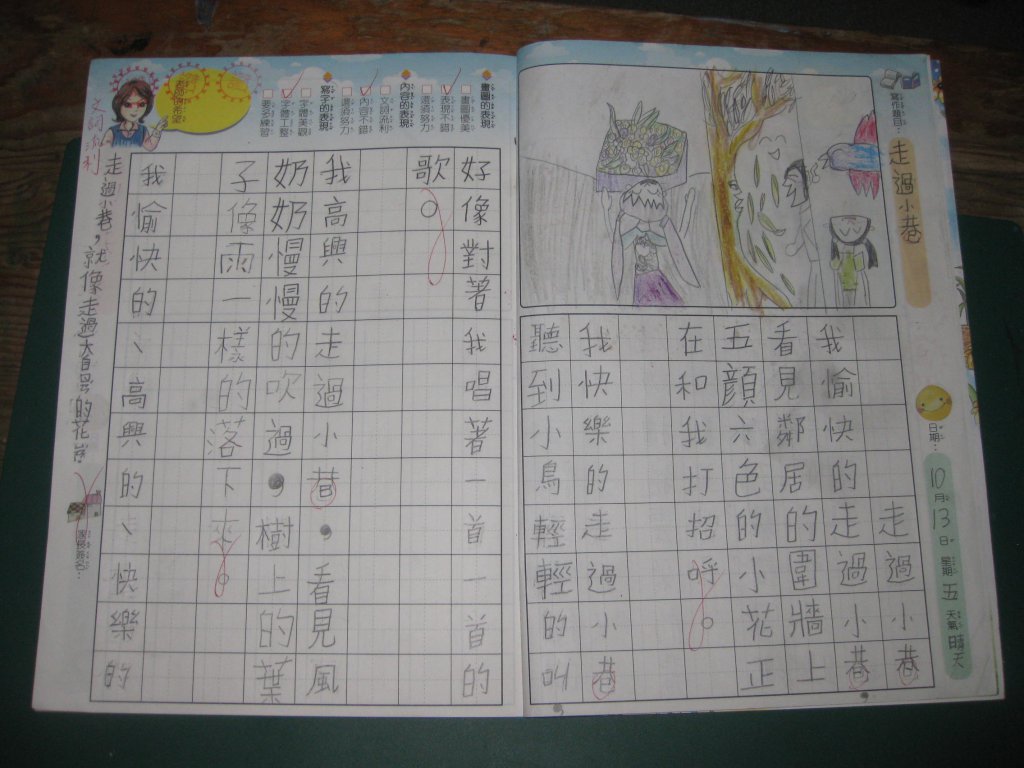 寫作題目：
走過小巷
日期：10月13日 星期五 天氣 晴天
走過小巷
我愉快的走過小巷，
看見鄰居的圍牆上
五顏六色的小花正
在和我打招呼。
我快樂的走過小巷，
聽到小鳥輕輕的叫，
畫圖的表現
畫圖優美
表現不錯
還須努力
內容的表現
文詞流利
內容不錯
還須努力
寫字的表現
字體美觀
字體工整
要多練習
文詞流利
好像對著我唱著一首一首的
歌。
我高興的走過小巷，看見風
奶奶慢慢的吹過，樹上的葉
子像雨一樣的落下來。
我愉快的、高興的、快樂的
走過小巷，就像走過大自然的花
家長簽名：